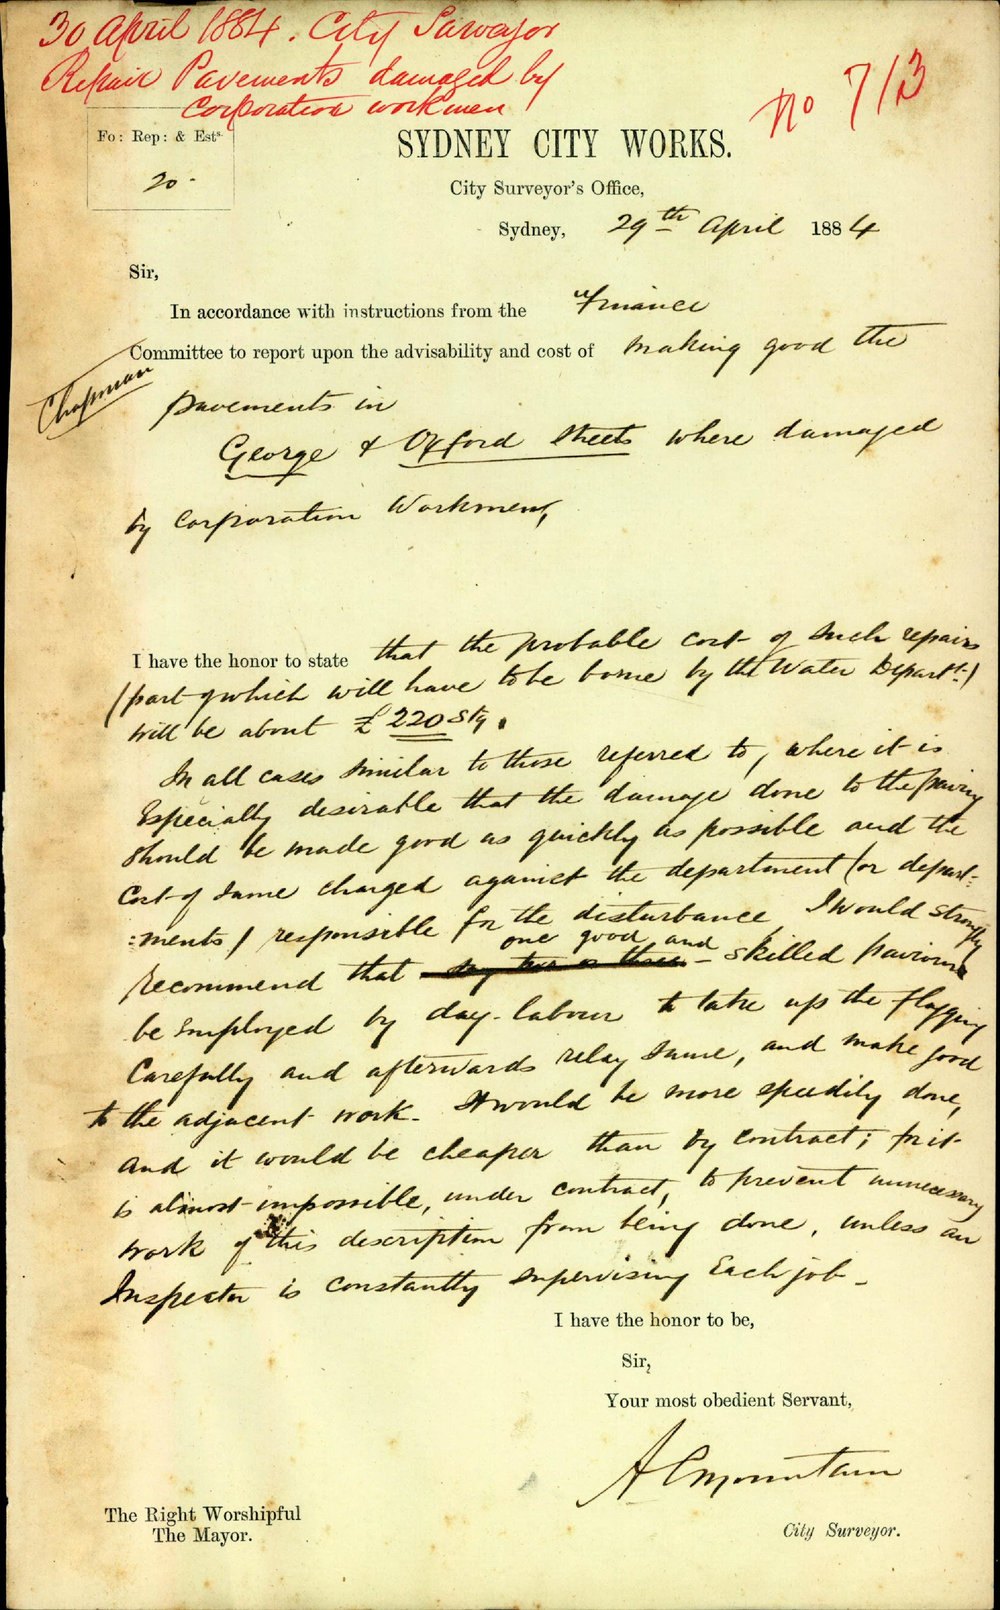 30 April 1884. City Surveyor
Repair Pavements damaged by
Corporation workmen
No 713
Fo: Rep: & Ests.
20.
SYDNEY CITY WORKS.
City Surveyor's Office,
Sydney, 29th April 1884
Sir,
In accordance with instructions from the "Finance
Committee to report upon the advisability and cost of making good the
Chapman
pavements in
George & Oxford Streets where damaged
by Corporation Workmen,
I have the honor to state that the probable cost of such repairs
(part of which will have to be borne by the Water Departt.)
will be about £220 Stg.
In all cases similar to those referred to, where it is
Especially desirable that the damage done to the paving
should be made good as quickly as possible and the
Cost of same charged against the department (or depart=
=ments) responsible for the disturbance, I would strongly
one good and
recommend that say two or three - skilled paviours
be Employed by day-labour to take up the flagging
Carefully and afterwards relay same, and make good
to the adjacent work. It would be more speedily done,
and it would be cheaper than by Contract; for it
is almost impossible, under contract, to prevent unnecessary
work of this description from being done, unless an
Inspector is constantly supervising Each job -
I have the honor to be,
Sir,
Your most obedient Servant,
A C Mountain
City Surveyor.
The Right Worshipful
The Mayor.